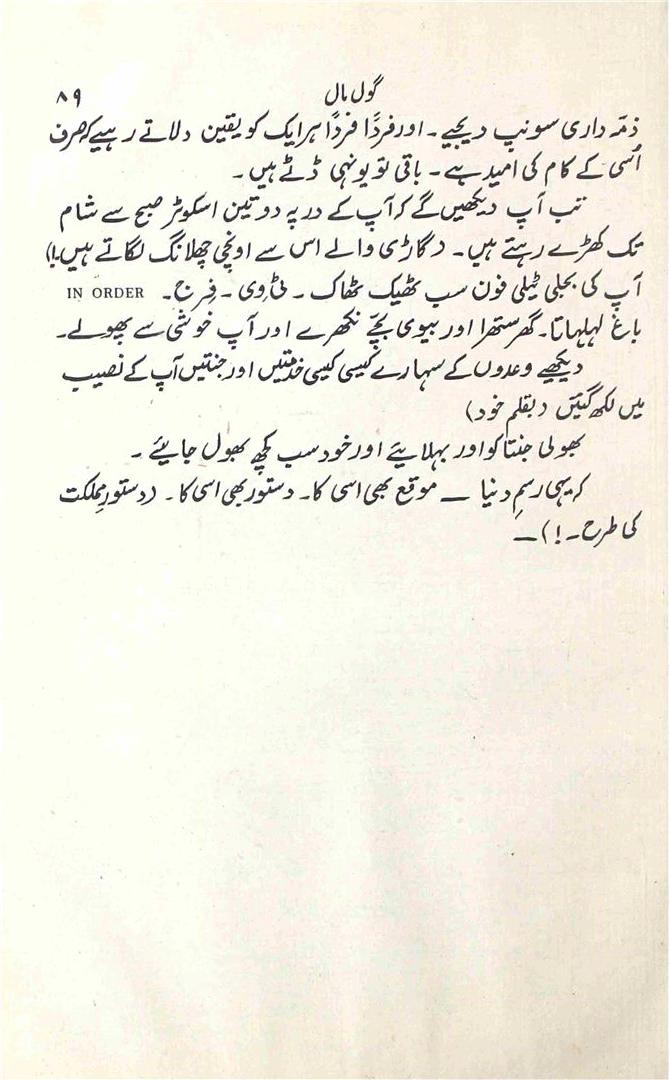 گول مال ۸۹
ذمّہ داری سونپ دیجیے۔ اور فرداً فرداً ہر ایک کو یقین دلاتے رہیے کہ صرف
اُسی کے کام کی امید ہے۔ باقی تو یونہی ڈٹے ہیں۔
تب آپ دیکھیں گے کہ آپ کے در پہ دو تین اسکوٹر صبح سے شام
تک کھڑے رہتے ہیں۔ (گاڑی والے اس سے اونچی چھلانگ لگاتے ہیں۔!)
آپ کی بجلی ٹیلی فون سب ٹھیک ٹھاک۔ ٹی وی۔ فرج۔ IN ORDER
باغ لہلہاتا۔ گھر ستھرا اور بیوی بچّے نکھرے اور آپ خوشی سے پھولے۔
دیکھیے وعدوں کے سہارے کیسی کیسی خدمتیں اور جنتیں آپ کے نصیب
میں لکھ گئیں (بقلم خود)
بھولی جنتا کو اور بہلایئے اور خود سب کچھ بھول جایئے۔
کہ یہی رسمِ دنیا — موقع بھی اسی کا۔ دستور بھی اسی کا۔ (دستورِ مملکت
کی طرح۔!)—